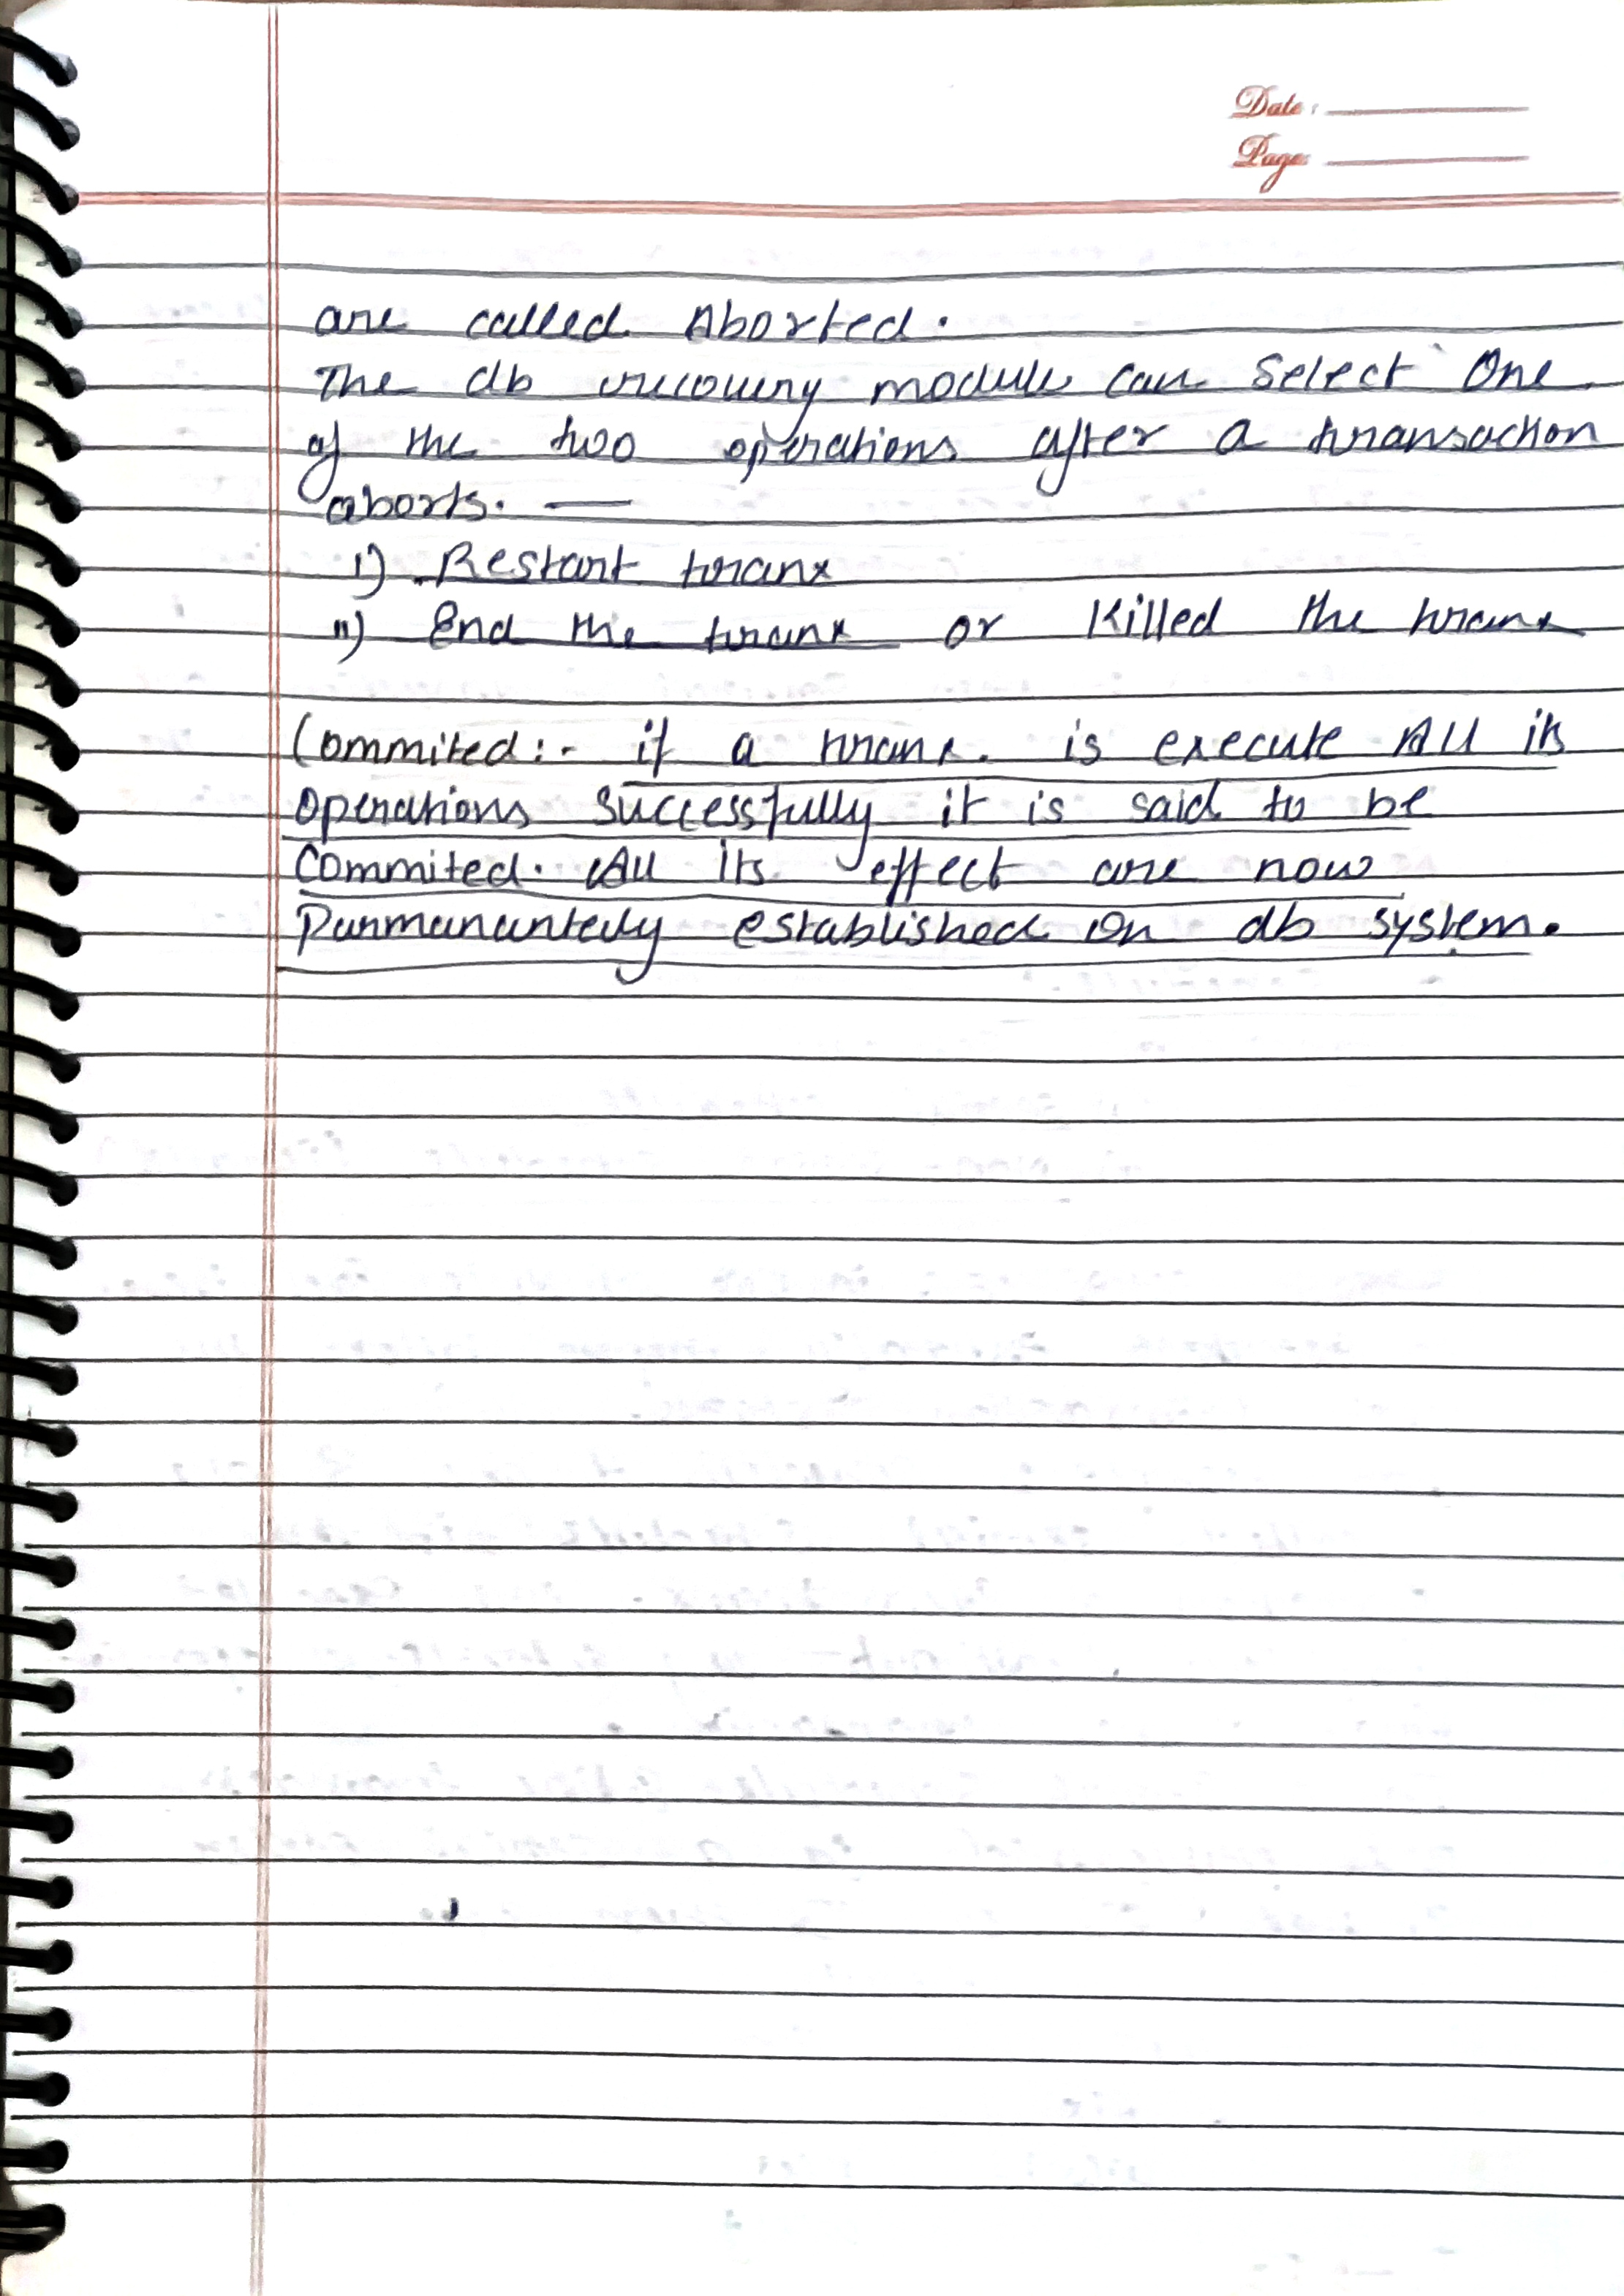 Date :
Page
are called Aborted.
The db recovery module can select One
of the two operations after a transaction
aborts. —
i) Restart tranx
ii) End the tranx or Killed the tranx
Commited:- if a tranx. is execute All its
Operations Successfully it is said to be
Commited. All its effect are now
Parmanantely established on db system.